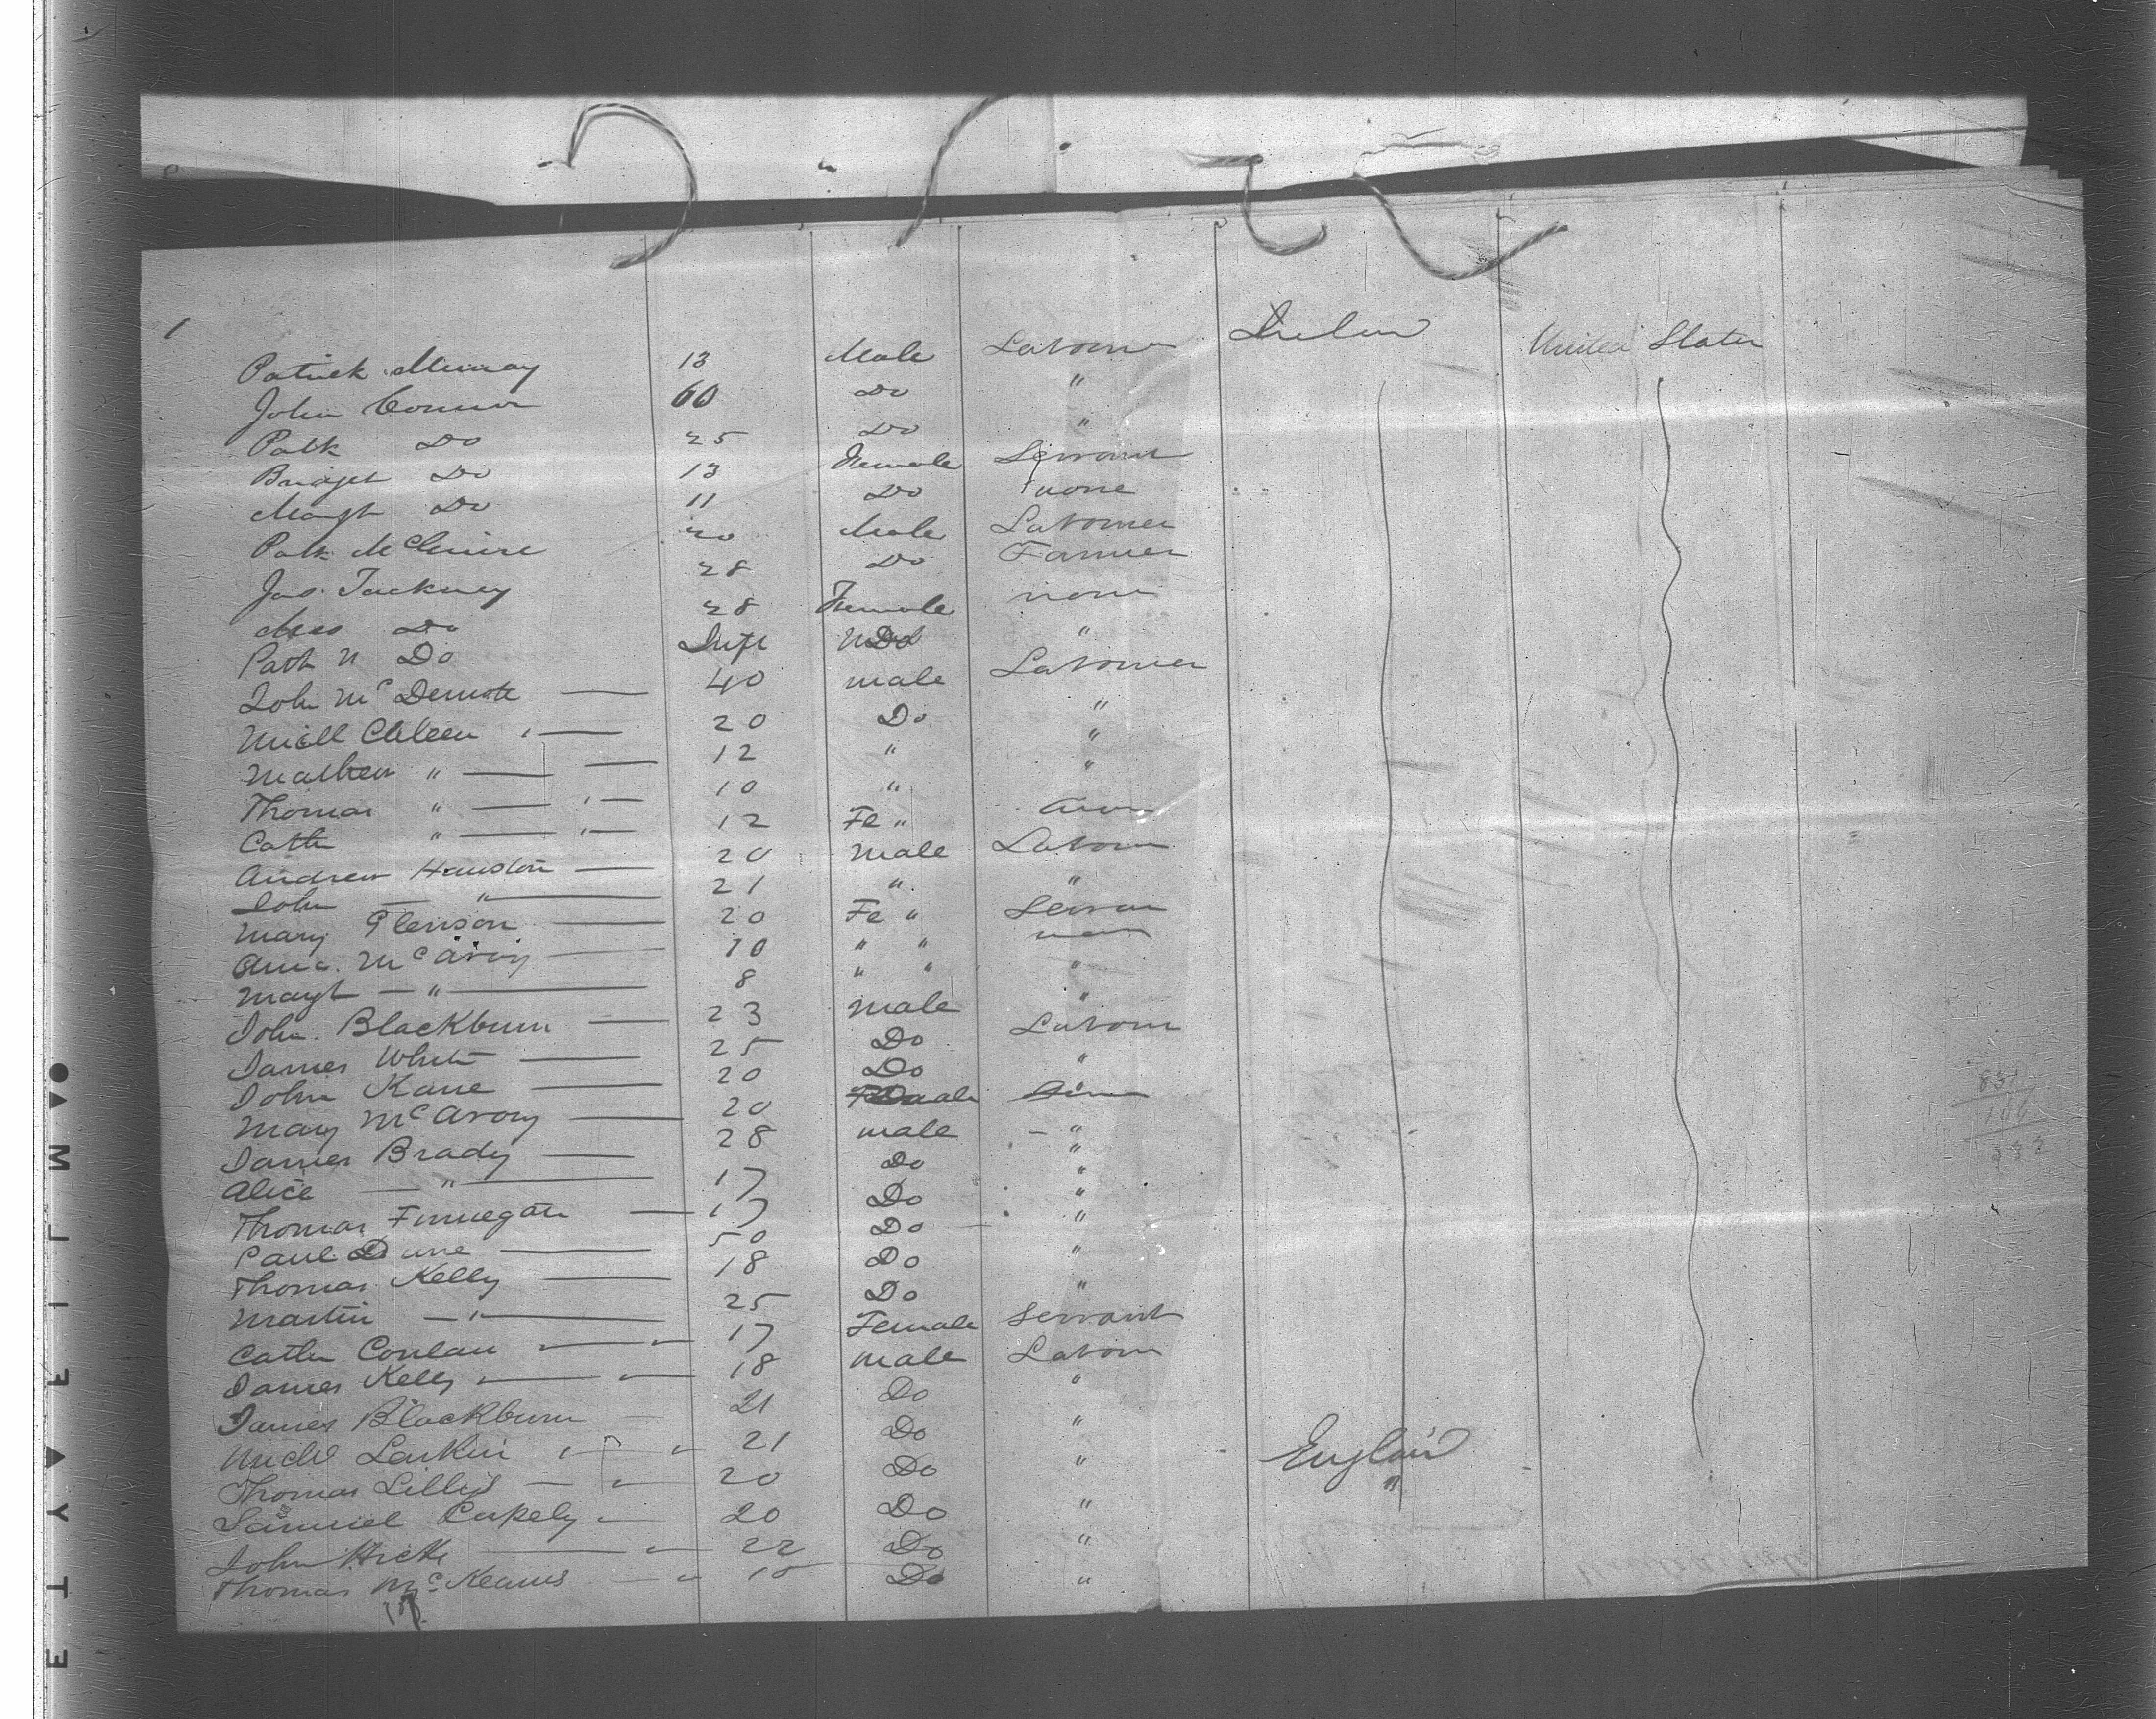 1
Patrick Murray 13 Male Labourer Ireland United States
John Connor 60 Do "
Patk Do 25 Do "
Bridget Do 13 Female Servant
Margt Do 11 Do none
Patk McGuire 20 Male Labourer
Jas. Tackney 28 Do Farmer
Mrs Do 28 Female none
Patk n Do Inft "
John McDermott 40 male Labourer
Micll Cileen 20 Do "
Mathew " 12 " "
Thomas " 10 " "
Cath " 12 Fe "
Andrew Houston 20 male Labour
John " 21 " "
Mary Glenson 20 Fe " Servan
Ann McAvoy 10 " " non
Margt " 8 " " "
John Blackburn 23 male "
James White 25 Do Labour
John Kane 20 Do "
Mary McAvoy 20
James Brady 28 male "
Alice " 17 Do "
Thomas Finnegan 17 Do "
Paul Dune 50 Do "
Thomas Kelly 18 Do "
Martin " 25 Do "
Cathn Conlan 17 Female Servant
James Kelly 18 male Labour
James Blackburn 21 Do "
Michl Larkin 21 Do "
Thomas Lillys 20 Do " England
Samuel Cakely 20 Do " "
John Hick 22 Do "
Thomas McKeams Do "